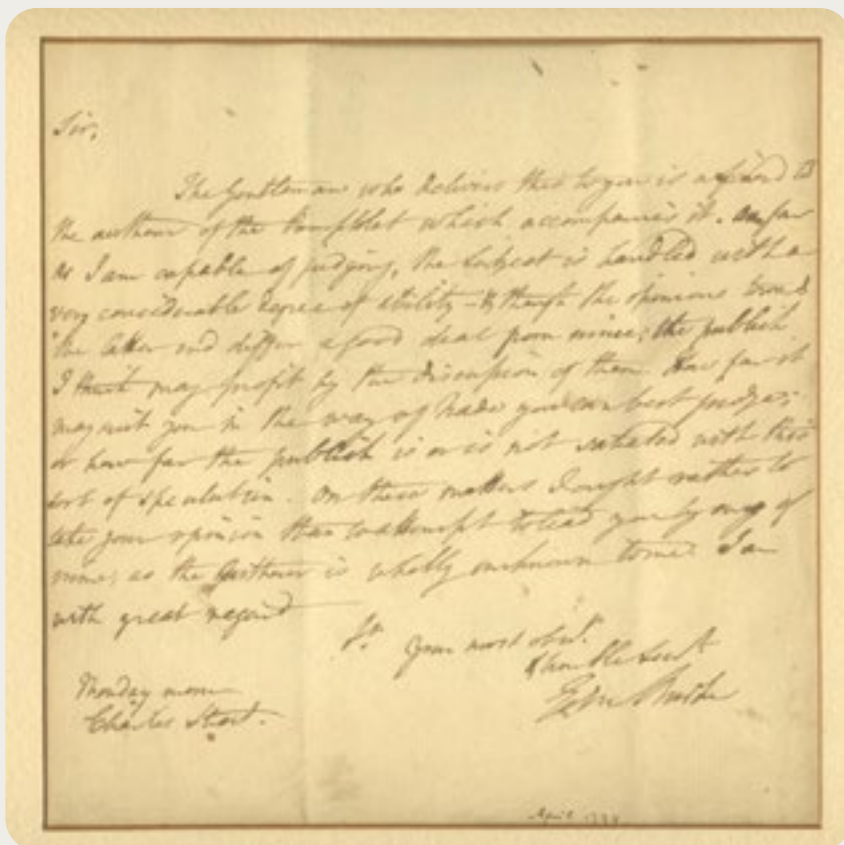 Sir,
The Gentleman who delivers this to you is a friend to
the authour of the Pamphlet which accompanies it. As far
as I am capable of judging, the subject is handled with a
very considerable degree of ability - & though the opinions
the latter end differ a good deal from mine; the publick
I think may profit by the discussion of them. How far it
may suit you in the way of Trade you can best judge;
or how far the publick is or is not satiated with this
sort of speculation. On these matters I ought rather to
take your opinion than to attempt to lead you by any of
mine; as the Authour is wholly unknown to me. I am
with great regard
Sr.
your most obdt.
& humble Servt
Edm Burke
Monday morn
Charles Street.
April